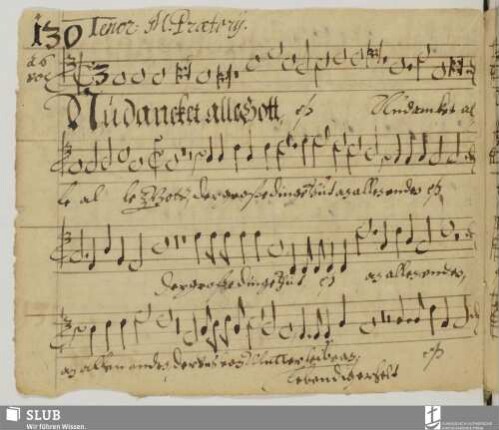 130 Tenor. M. Prætorij.
à 6
voc:
Nu dancket alle Gott, Nu dancket al
le al le Gott, der grosse dinge thut an allen enden
der grosse dinge thut an allen enden,
an allen enden, der uns von Mutterleibe an,
lebendig erhelt
SLUB
Wir führen Wissen.